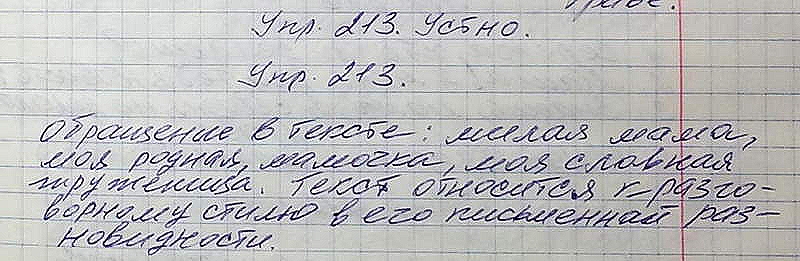 Упр. 213. Устно.
Упр. 213.
Обращение в тексте: милая мама,
моя родная, мамочка, моя славная
труженица. Текст относится к разго-
ворному стилю в его письменной раз-
новидности.